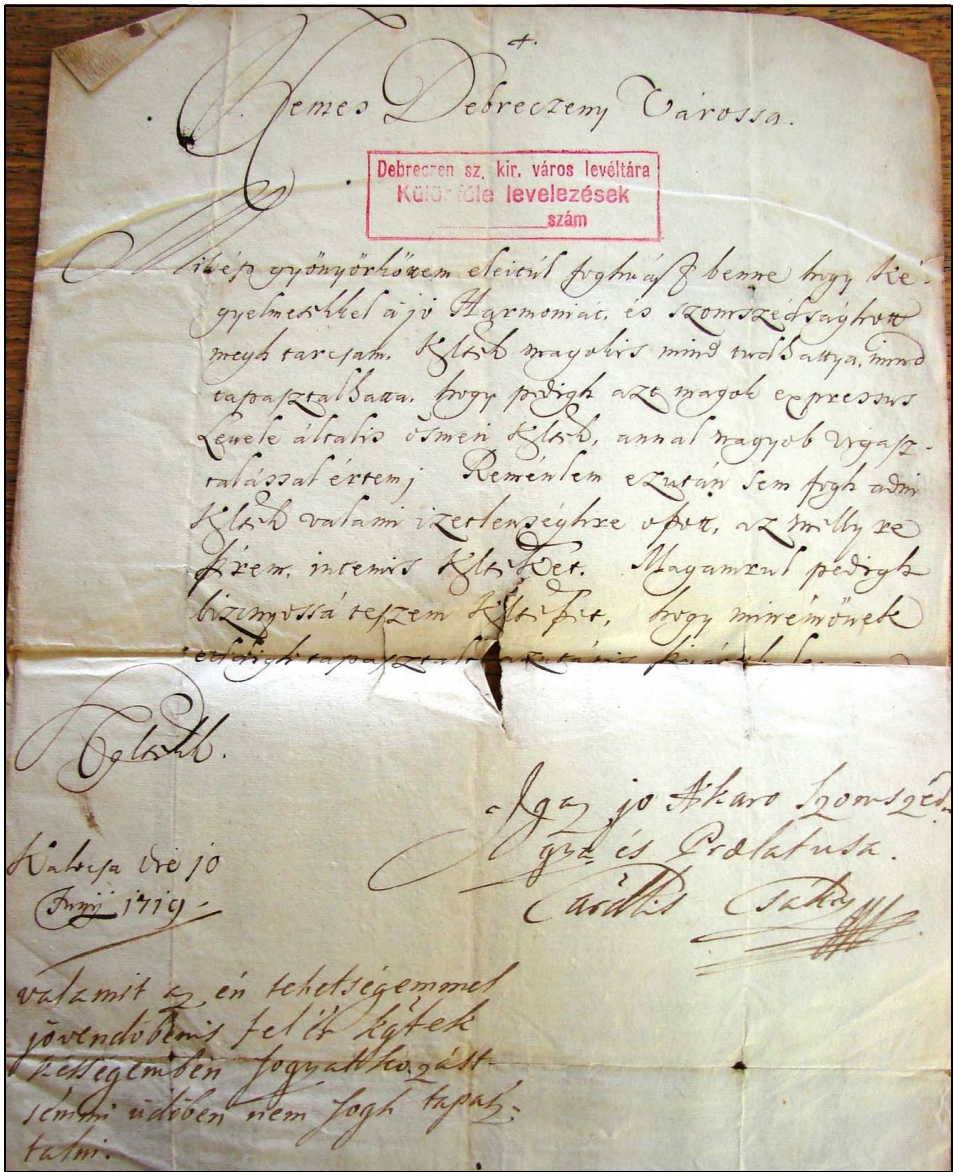 Nemes Debreczeny Várossa.
Debreczen sz. kir. város levéltára
Különféle levelezések
szám
gyönyörkö eleitül fogh benne hogy Ke-
gyelmetekkel a jó Harmoniát, és szomszédsághott
megh tarcsam. Kltek magokis mind tudhattya, mind
tapasztalhatta. hogy pedigh azt magok expressus
Levele általis ösmeri Kltek, annál nagyob vigasz-
talással értem; Reménlem ezután sem fogh adni
Kltek valami izetlenséghre okott, az melly re
kérem, intemis Klteket. Magamrul pedigh
bizonyossá teszem Klteket, hogy minémönek
eddigh
Kgltek.
Igaz jo Akaro Szomszéd-
gya és Prælatusa.
Kalocsa die 10
Junij 1719.
Csaky
valamit az én tehetségemmel
jövendőbenis fel ér kgtek
készségemben fogyatkozást
semmi üdőben nem fogh tapasz-
talni.